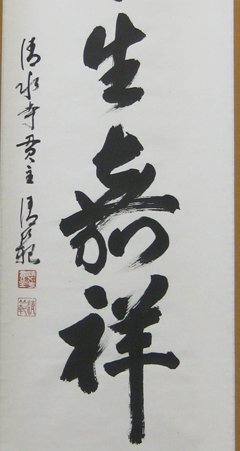 生嘉祥
清水寺貫主 清範